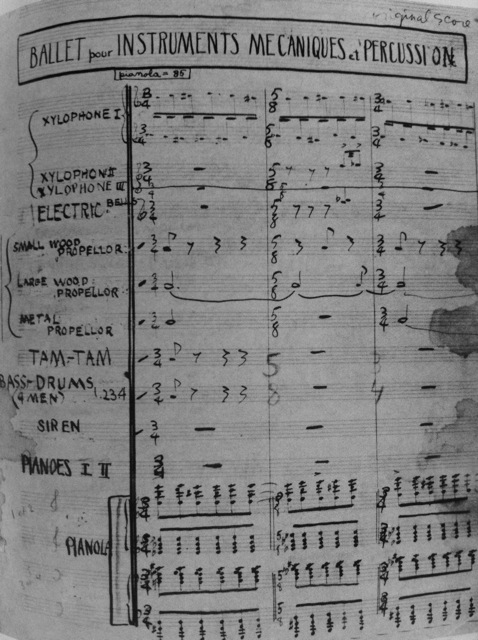 original score
BALLET pour INSTRUMENTS MECANIQUES et PERCUSSION
pianola = 85
XYLOPHONE I
XYLOPHONE II
XYLOPHONE III
ELECTRIC BELLS
SMALL WOOD
PROPELLOR
LARGE WOOD
PROPELLOR
METAL
PROPELLOR
TAM-TAM
BASS-DRUMS
(4 MEN) 1.2.3.4
SIREN
PIANOES I II
PIANOLA